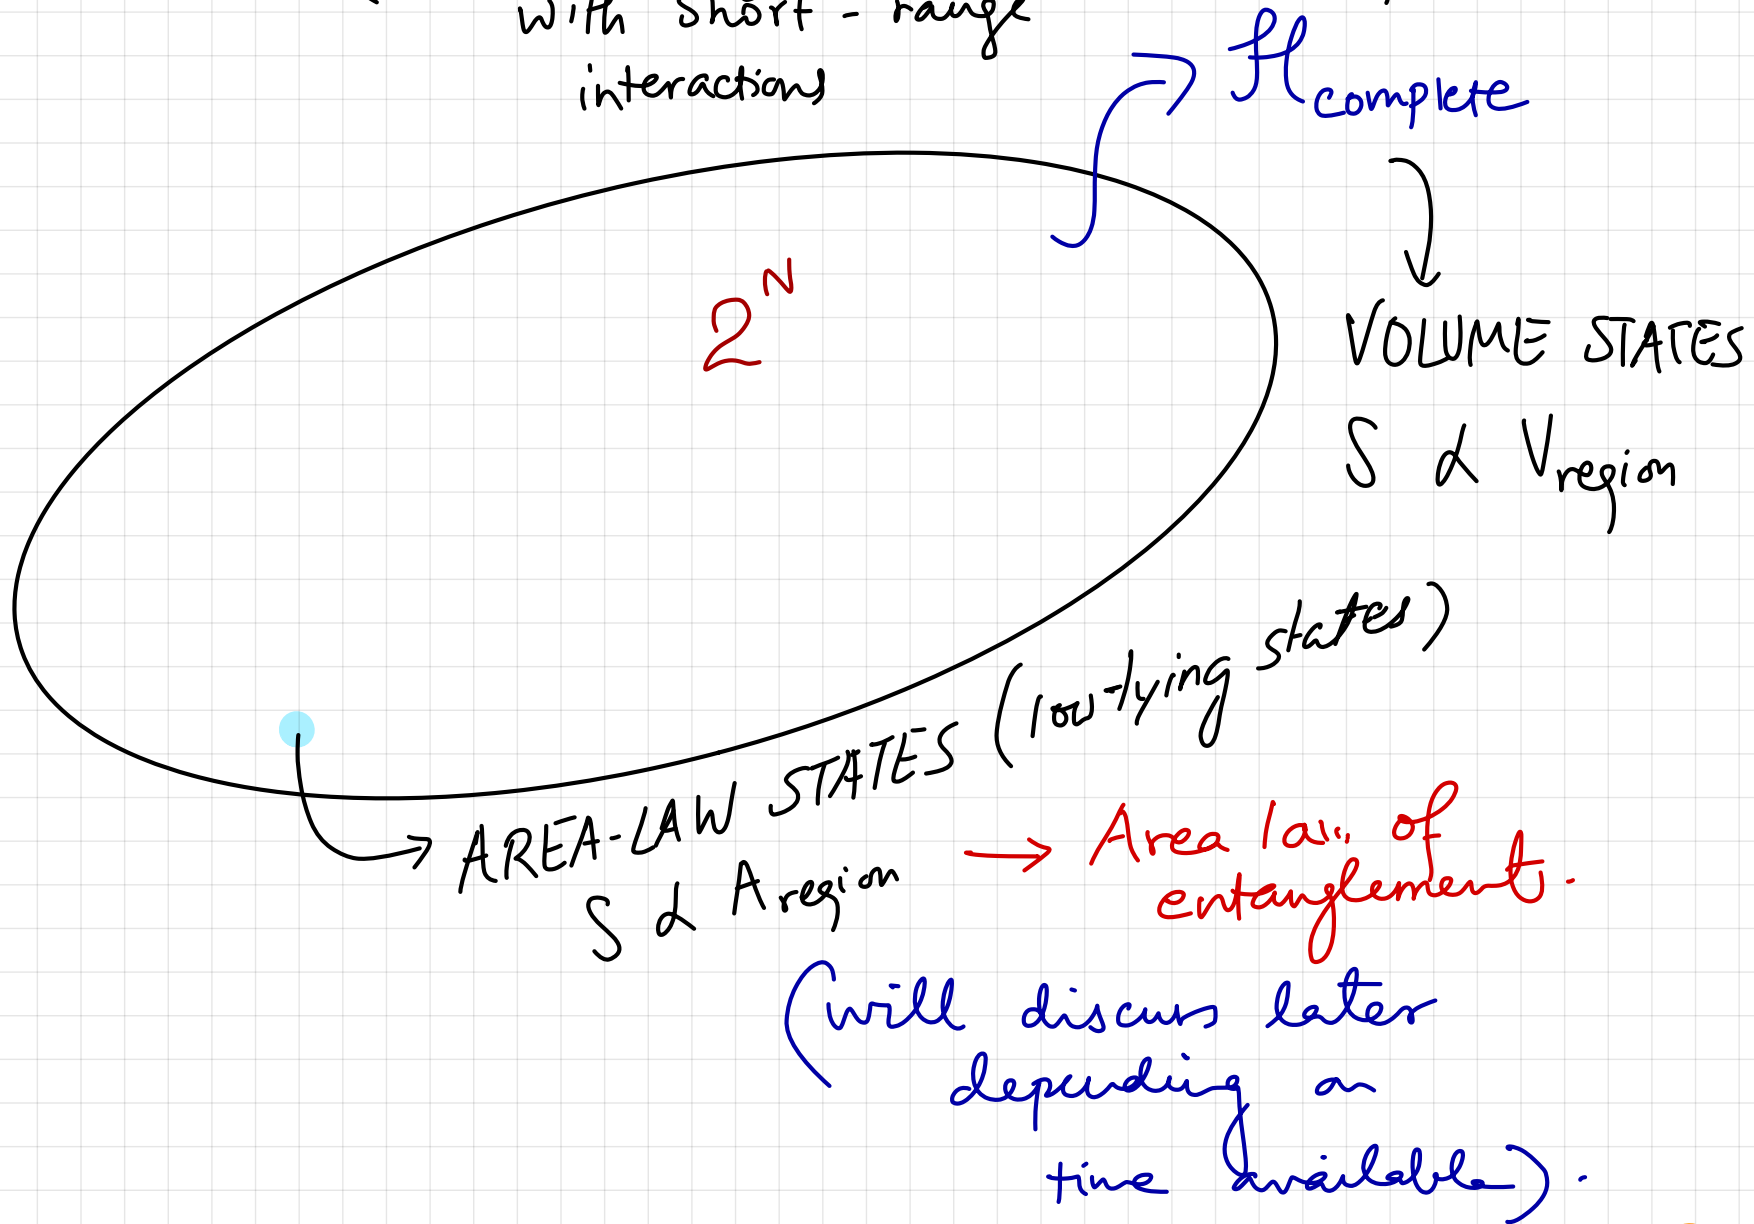 with short-range
interactions
ℋcomplete
2^N
VOLUME STATES
S α Vregion
AREA-LAW STATES (low-lying states)
S α Aregion → Area law of
entanglement.
(will discuss later
depending on
time available).